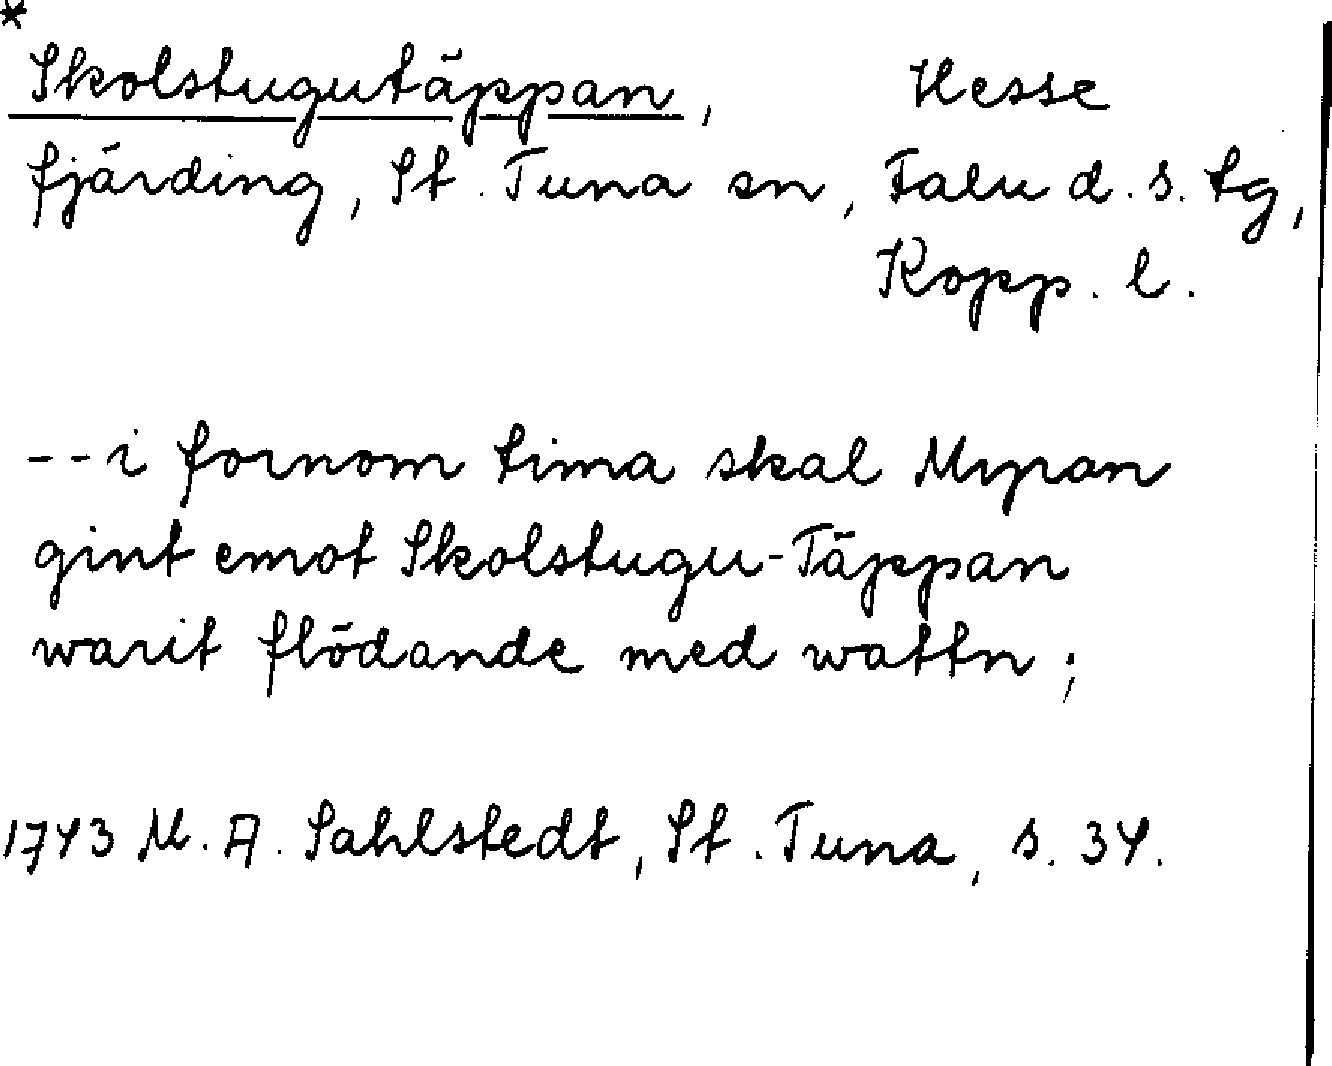 *
Skolstugutäppan, Hesse
fjärding, St. Tuna sn, Falu d. s. tg,
Kopp. l.
-- i fornom tima skal Myran
gint emot Skolstugu-Täppan
warit flödande med wattn;
1743 M. A. Sahlstedt, St. Tuna, s. 34.